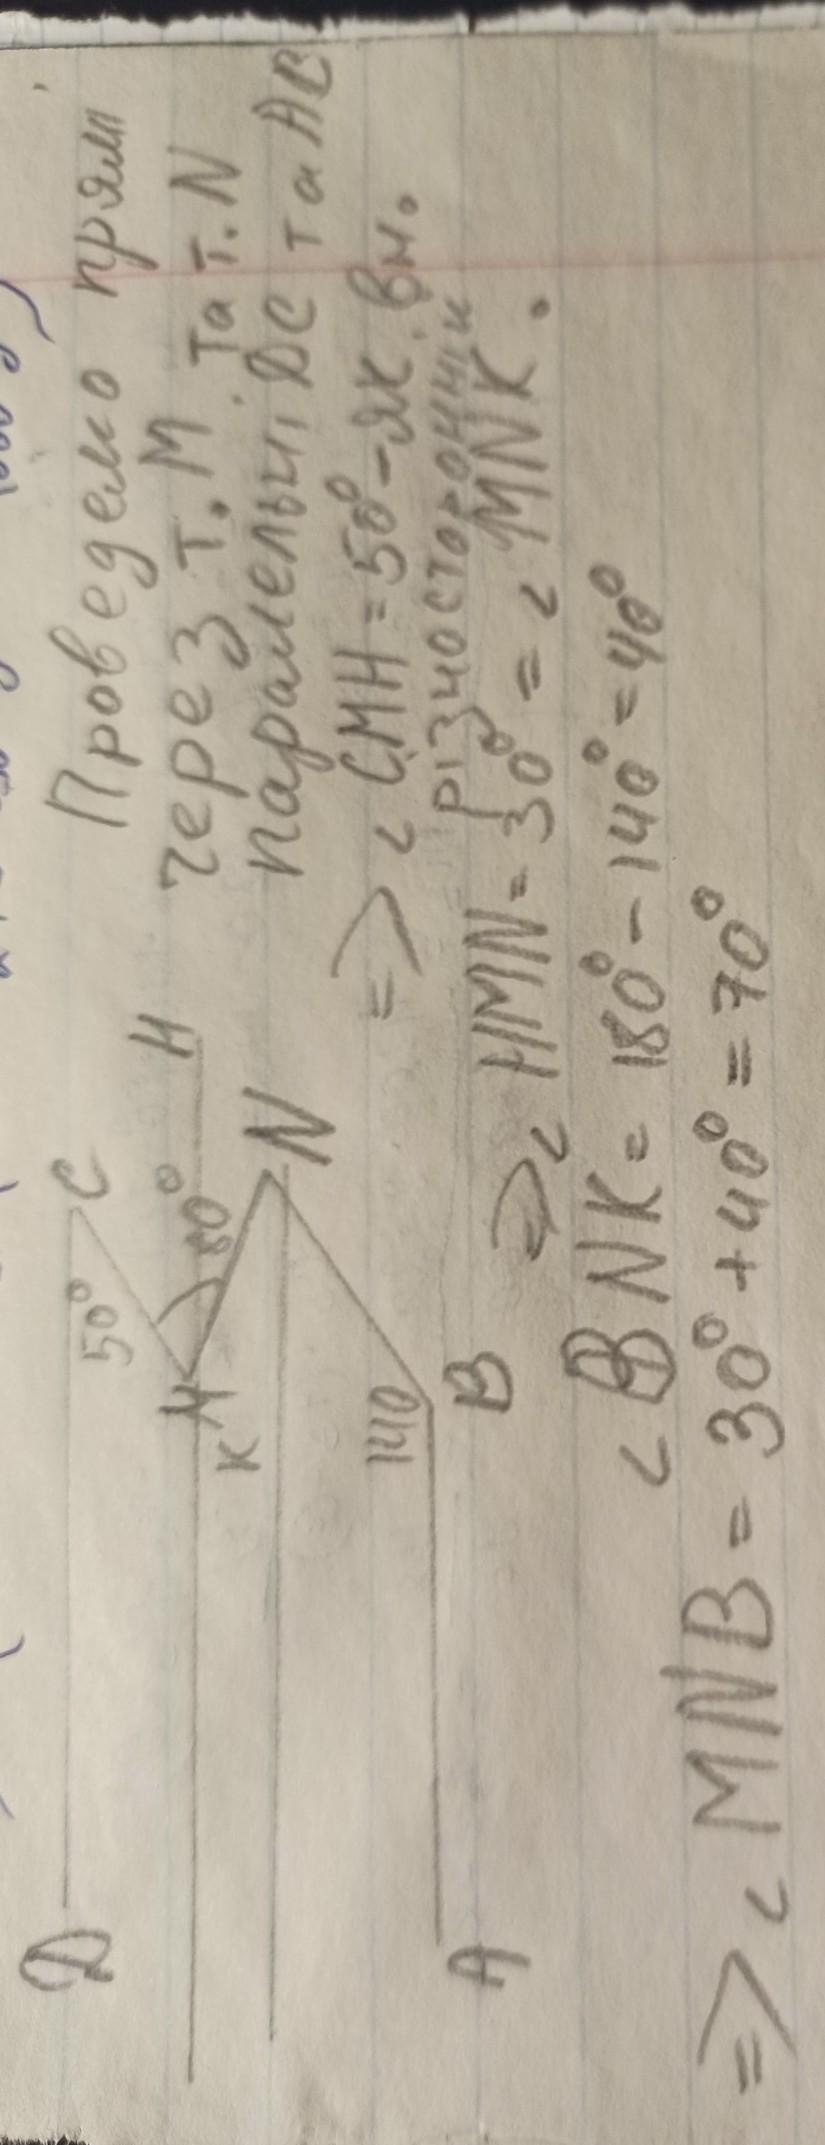 Проведемо прям
через т. М та т. N
паралельні DC та AB
=> ∠ CMH = 50° - як вн.
різносторонни
=> ∠ HMN = 30° = ∠ MNK.
∠ BNK = 180° - 140° = 40°
=> ∠ MNB = 30° + 40° = 70°
D
50°
C
M
80°
H
K
N
140
A
B